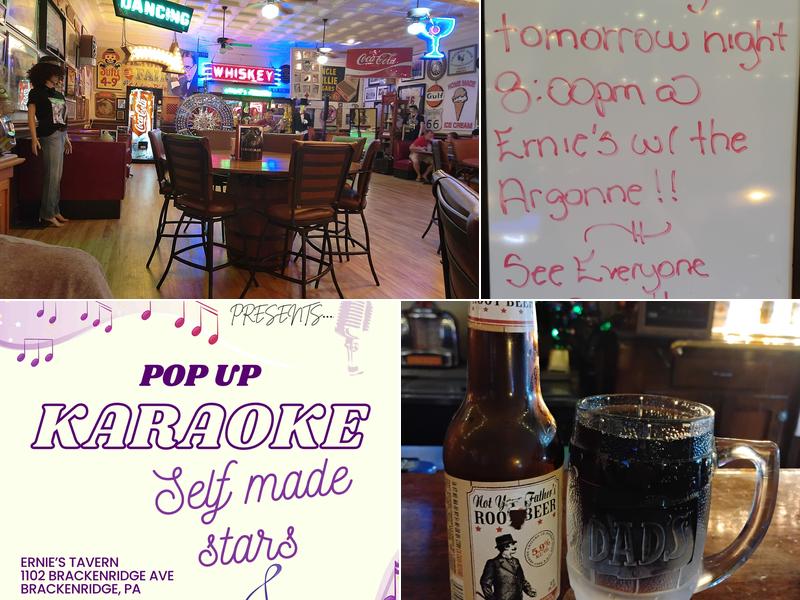 DANCING
WHISKEY
Coca-Cola
Gulf
66
HOME MADE
ICE CREAM
tomorrow night
8:00pm @
Ernie's w/ the
Argonne!!
See Everyone
PRESENTS...
POP UP
KARAOKE
Self made
stars
&
ERNIE'S TAVERN
1102 BRACKENRIDGE AVE
BRACKENRIDGE, PA
ROOT BEER
Not Your Father's
ROOT BEER
5.9%
DAD'S